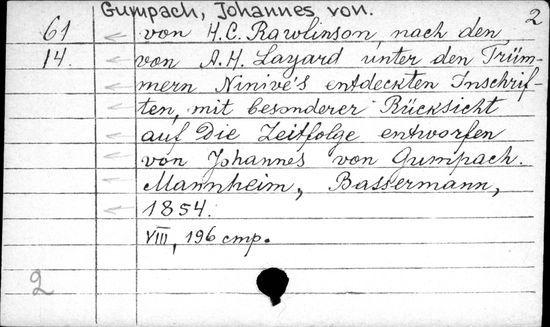 Gumpach, Johannes von.
2
61 von H.C. Rawlinson, nach den,
14. von A.H. Layard unter den Trüm-
mern Ninive's entdeckten Inschrif-
ten, mit besonderer Rücksicht
auf Die Zeitfolge entworfen
von Johannes von Gumpach.
Mannheim, Bassermann,
1854.
VIII, 196 cmp.
2